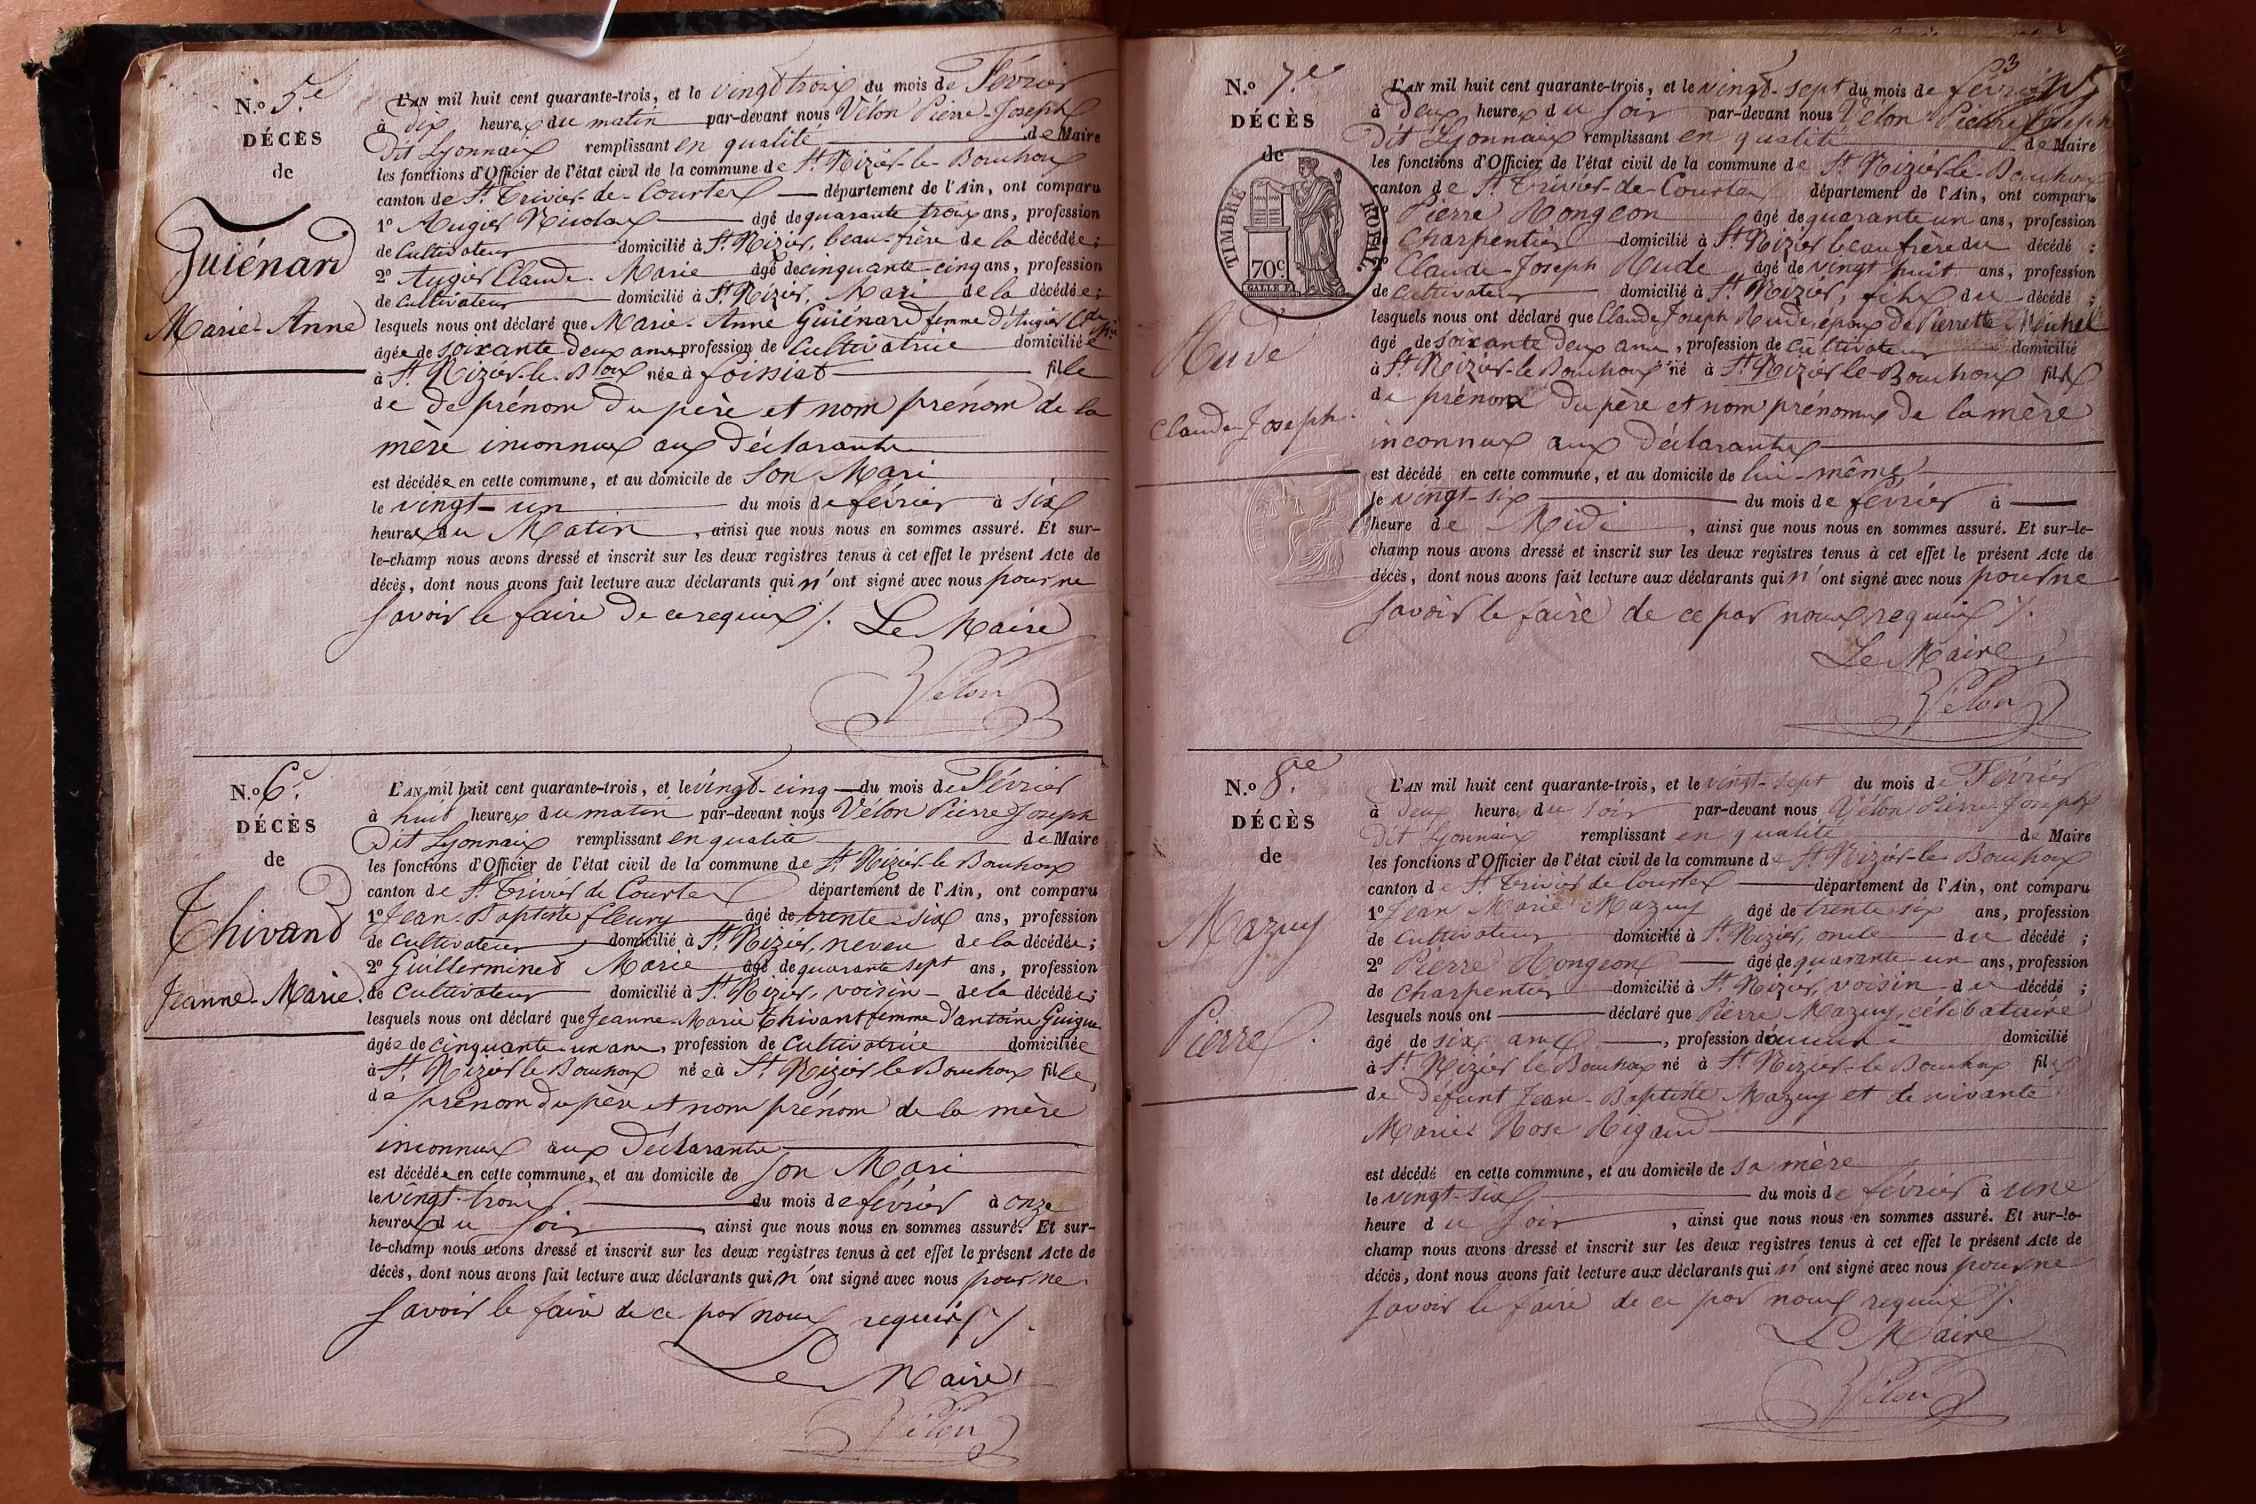 N.º 5.e
DÉCÈS
de
Guiénard
Marie-Anne
L'AN mil huit cent quarante-trois, et le vingt trois du mois de Février
à dix heures du matin par-devant nous Vélon Pierre-Joseph
Dit Lyonnais remplissant en qualité de Maire
les fonctions d'Officier de l'état civil de la commune de St. Nizier-le-Bouchoux
canton de St. Trivier-de-Courtes département de l'Ain, ont comparu
1º Augier Nicolas âgé de quarante trois ans, profession
de Cultivateur domicilié à St. Nizier, beau-frère de la décédée;
2º Augier Claude-Marie âgé de cinquante-cinq ans, profession
de Cultivateur domicilié à St. Nizier, Mari de la décédée;
lesquels nous ont déclaré que Marie-Anne Guiénard femme d'Augier Cde Mie
âgée de soixante deux ans profession de Cultivatrice domiciliée
à St. Nizier-le-Boux née à foissiat fille
de de prénom du père et nom prénom de la
mère inconnus aux déclarants
est décédée en cette commune, et au domicile de son Mari
le vingt-un du mois de février à six
heures du Matin, ainsi que nous nous en sommes assuré. Et sur-
le-champ nous avons dressé et inscrit sur les deux registres tenus à cet effet le présent Acte de
décès, dont nous avons fait lecture aux déclarants qui n'ont signé avec nous pour ne
savoir le faire de ce requis /. Le Maire
Vélon
N.º 6.e
DÉCÈS
de
Thivand
Jeanne-Marie.
L'AN mil huit cent quarante-trois, et le vingt-cinq du mois de Février
à huit heures du matin par-devant nous Vélon Pierre Joseph
Dit Lyonnais remplissant en qualité de Maire
les fonctions d'Officier de l'état civil de la commune de St. Nizier-le-Bouchoux
canton de St. Trivier de Courtes département de l'Ain, ont comparu
1º Jean-Baptiste fleury âgé de trente-six ans, profession
de Cultivateur domicilié à St. Nizier, neveu de la décédée;
2º Guillerminet Marie âgé de quarante sept ans, profession
de Cultivateur domicilié à St. Nizier, voisin de la décédée;
lesquels nous ont déclaré que Jeanne-Marie Thivant femme d'antoine Guigue
âgée de cinquante-un ans, profession de Cultivatrice domiciliée
à St. Nizier le Bouchoux née à St. Nizier le Bouchoux fille
de prénom du père et nom prénom de la mère
inconnus aux déclarants
est décédée en cette commune, et au domicile de son Mari
le vingt-trois du mois de février à onze
heures du soir, ainsi que nous nous en sommes assuré. Et sur-
le-champ nous avons dressé et inscrit sur les deux registres tenus à cet effet le présent Acte de
décès, dont nous avons fait lecture aux déclarants qui n'ont signé avec nous pour ne
savoir le faire de ce par nous requis /.
Le Maire
Vélon
23
N.º 7.e
DÉCÈS
de
TIMBRE ROYAL.
70c
Rude
Claude-Joseph.
L'AN mil huit cent quarante-trois, et le vingt-sept du mois de février
à Deux heures du soir par-devant nous Vélon Pierre Joseph
Dit Lyonnais remplissant en qualité de Maire
les fonctions d'Officier de l'état civil de la commune de St. Nizier-le-Bouchoux
canton de St. Trivier-de-Courtes département de l'Ain, ont comparu
Pierre Rongeon âgé de quarante un ans, profession
Charpentier domicilié à St. Nizier beau frère du décédé;
Claude-Joseph Rude âgé de vingt huit ans, profession
de Cultivateur domicilié à St. Nizier, fils du décédé;
lesquels nous ont déclaré que Claude Joseph Rude, époux de Pierrette Michel
âgé de soixante deux ans, profession de cultivateur domicilié
à St. Nizier-le-Bouchoux né à St. Nizier le-Bouchoux fils
de prénom du père et nom prénoms de la mère
inconnus aux déclarants
est décédé en cette commune, et au domicile de lui-même
le vingt-six du mois de février à
heure de Midi, ainsi que nous nous en sommes assuré. Et sur-le-
champ nous avons dressé et inscrit sur les deux registres tenus à cet effet le présent Acte de
décès, dont nous avons fait lecture aux déclarants qui n'ont signé avec nous pour ne
savoir le faire de ce par nous requis /.
Le Maire
Vélon
N.º 8.e
DÉCÈS
de
Mazuy
Pierre.
L'AN mil huit cent quarante-trois, et le vingt-sept du mois de Février
à deux heures du soir par-devant nous Vélon Pierre Joseph
Dit Lyonnais remplissant en qualité de Maire
les fonctions d'Officier de l'état civil de la commune de St. Nizier-le-Bouchoux
canton de St. Trivier de Courtes département de l'Ain, ont comparu
1º Jean Marie Mazuy âgé de trente six ans, profession
de Cultivateur domicilié à St. Nizier, oncle du décédé;
2º Pierre Rongeon âgé de quarante-un ans, profession
de Charpentier domicilié à St. Nizier, voisin du décédé;
lesquels nous ont déclaré que Pierre Mazuy, célibataire
âgé de six ans, profession d'aucune domicilié
à St. Nizier le Bouchoux né à St. Nizier-le Bouchoux fils
de Défunt Jean-Baptiste Mazuy et de vivante
Marie Rose Rigaud
est décédé en cette commune, et au domicile de sa mère
le vingt-six du mois de février à une
heure du soir, ainsi que nous nous en sommes assuré. Et sur-le-
champ nous avons dressé et inscrit sur les deux registres tenus à cet effet le présent Acte de
décès, dont nous avons fait lecture aux déclarants qui n'ont signé avec nous pour ne
savoir le faire de ce par nous requis /.
Le Maire
Vélon